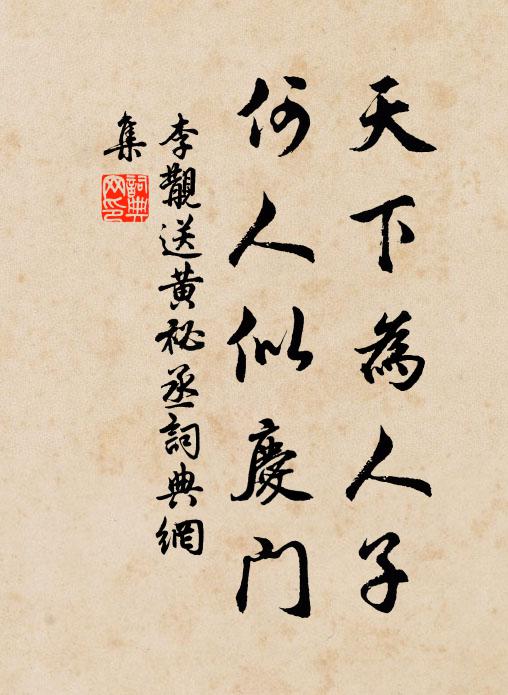 天下為人子
何人似慶門
李覯送黃祕丞詞典網
集
詞典
网印